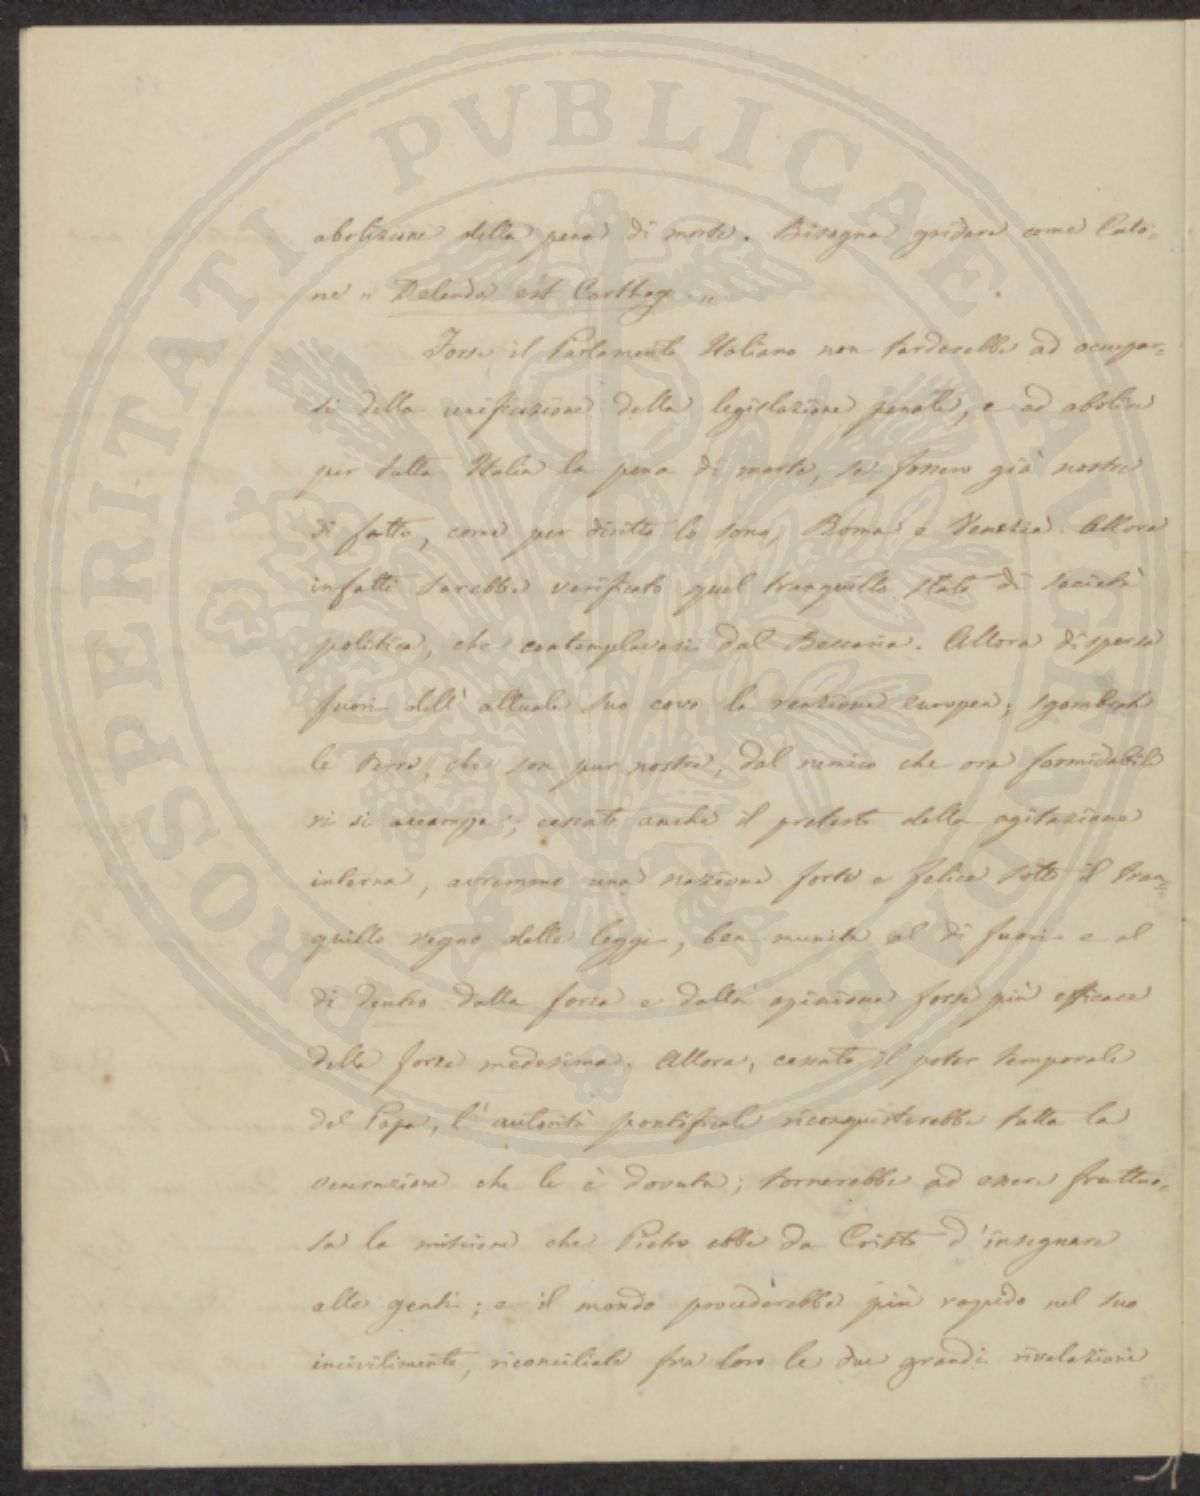 abolizione della pena di morte. Bisogna gridare come Cato=
ne " Delenda est Carthago "
Forse il Parlamento Italiano non tarderebbe ad occupar=
si della unificazione della legislazione penale, e ad abolire
per tutta Italia la pena di morte, se fossero già nostre
di fatto, come per diritto lo sono, Roma e Venezia. Allora
infatti sarebbe verificato quel tranquillo stato di società
politica, che contemplavasi dal Beccaria. Allora dispersa
fuori dell' attuale suo covo la reazione europea; sgombrate
le terre, che son pur nostre, dal nemico che ora formidabile
vi si accampa; cessato anche il pretesto della agitazione
interna, avremmo una nazione forte e felice sotto il tran=
quillo regno delle leggi, ben munita al di fuori e al
di dentro dalla forza e dalla opinione forse più efficace
della forza medesima. Allora, cessato il poter temporale
del Papa, l' autorità pontificale riconquisterebbe tutta la
venerazione che le è dovuta; tornerebbe ad essere fruttuo=
sa la missione che Pietro ebbe da Cristo d' insegnare
alle genti; e il mondo procederebbe più rapido nel suo
incivilimento, riconciliate fra loro le due grandi rivelazioni
PROSPERITATI PVBLICAE AVGENDAE